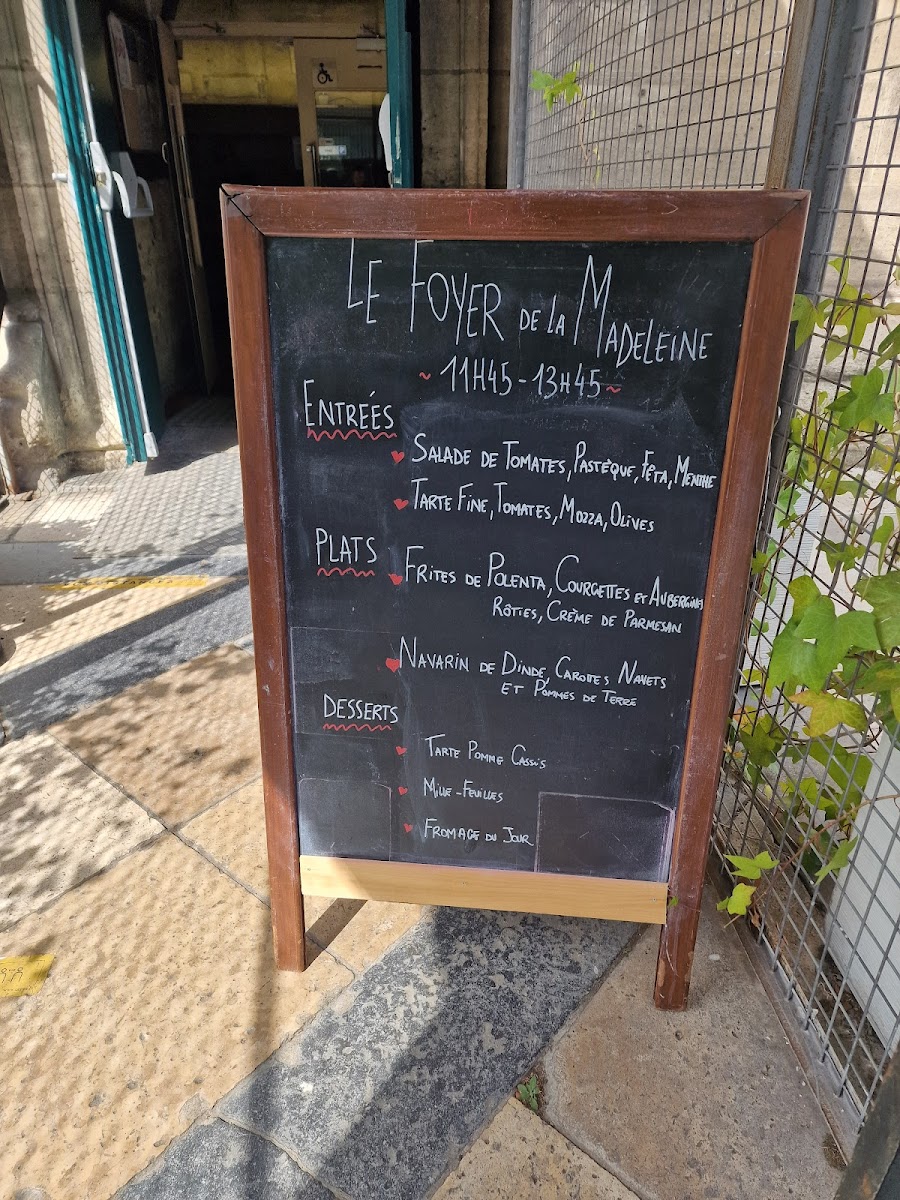 LE FOYER DE LA MADELEINE
~ 11H45 - 13H45 ~
ENTRÉES
SALADE DE TOMATES, PASTÈQUE, FÊTA, MENTHE
TARTE FINE, TOMATES, MOZZA, OLIVES
PLATS
FRITES DE POLENTA, COURGETTES ET AUBERGINES
RÔTIES, CRÈME DE PARMESAN
NAVARIN DE DINDE, CAROTTES NAVETS
ET POMMES DE TERRE
DESSERTS
TARTE POMME CASSIS
MILLE-FEUILLES
FROMAGE DU JOUR